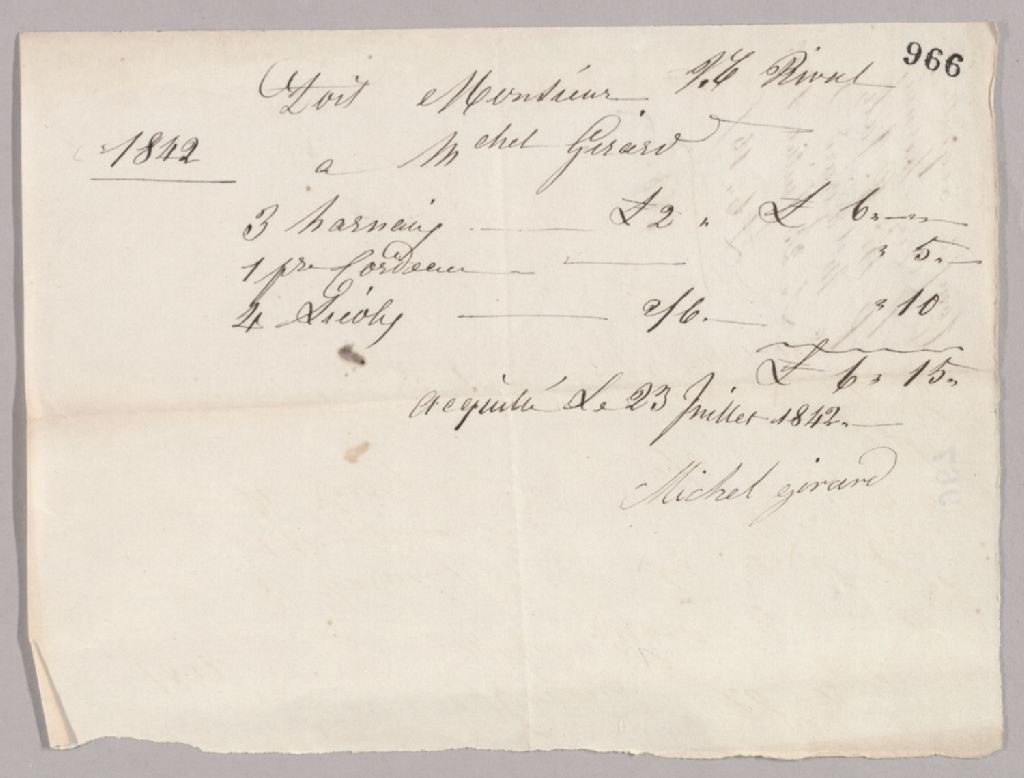 966
Doit Monsieur J. Rival
1842
a Mchel Girard
3 harnaiş £2 " £ 6 "
1 pre Cordeau " 5 "
4 s/6. " 10
£ 6 " 15 "
acquitté Le 23 Juillet 1842.
Michel girard